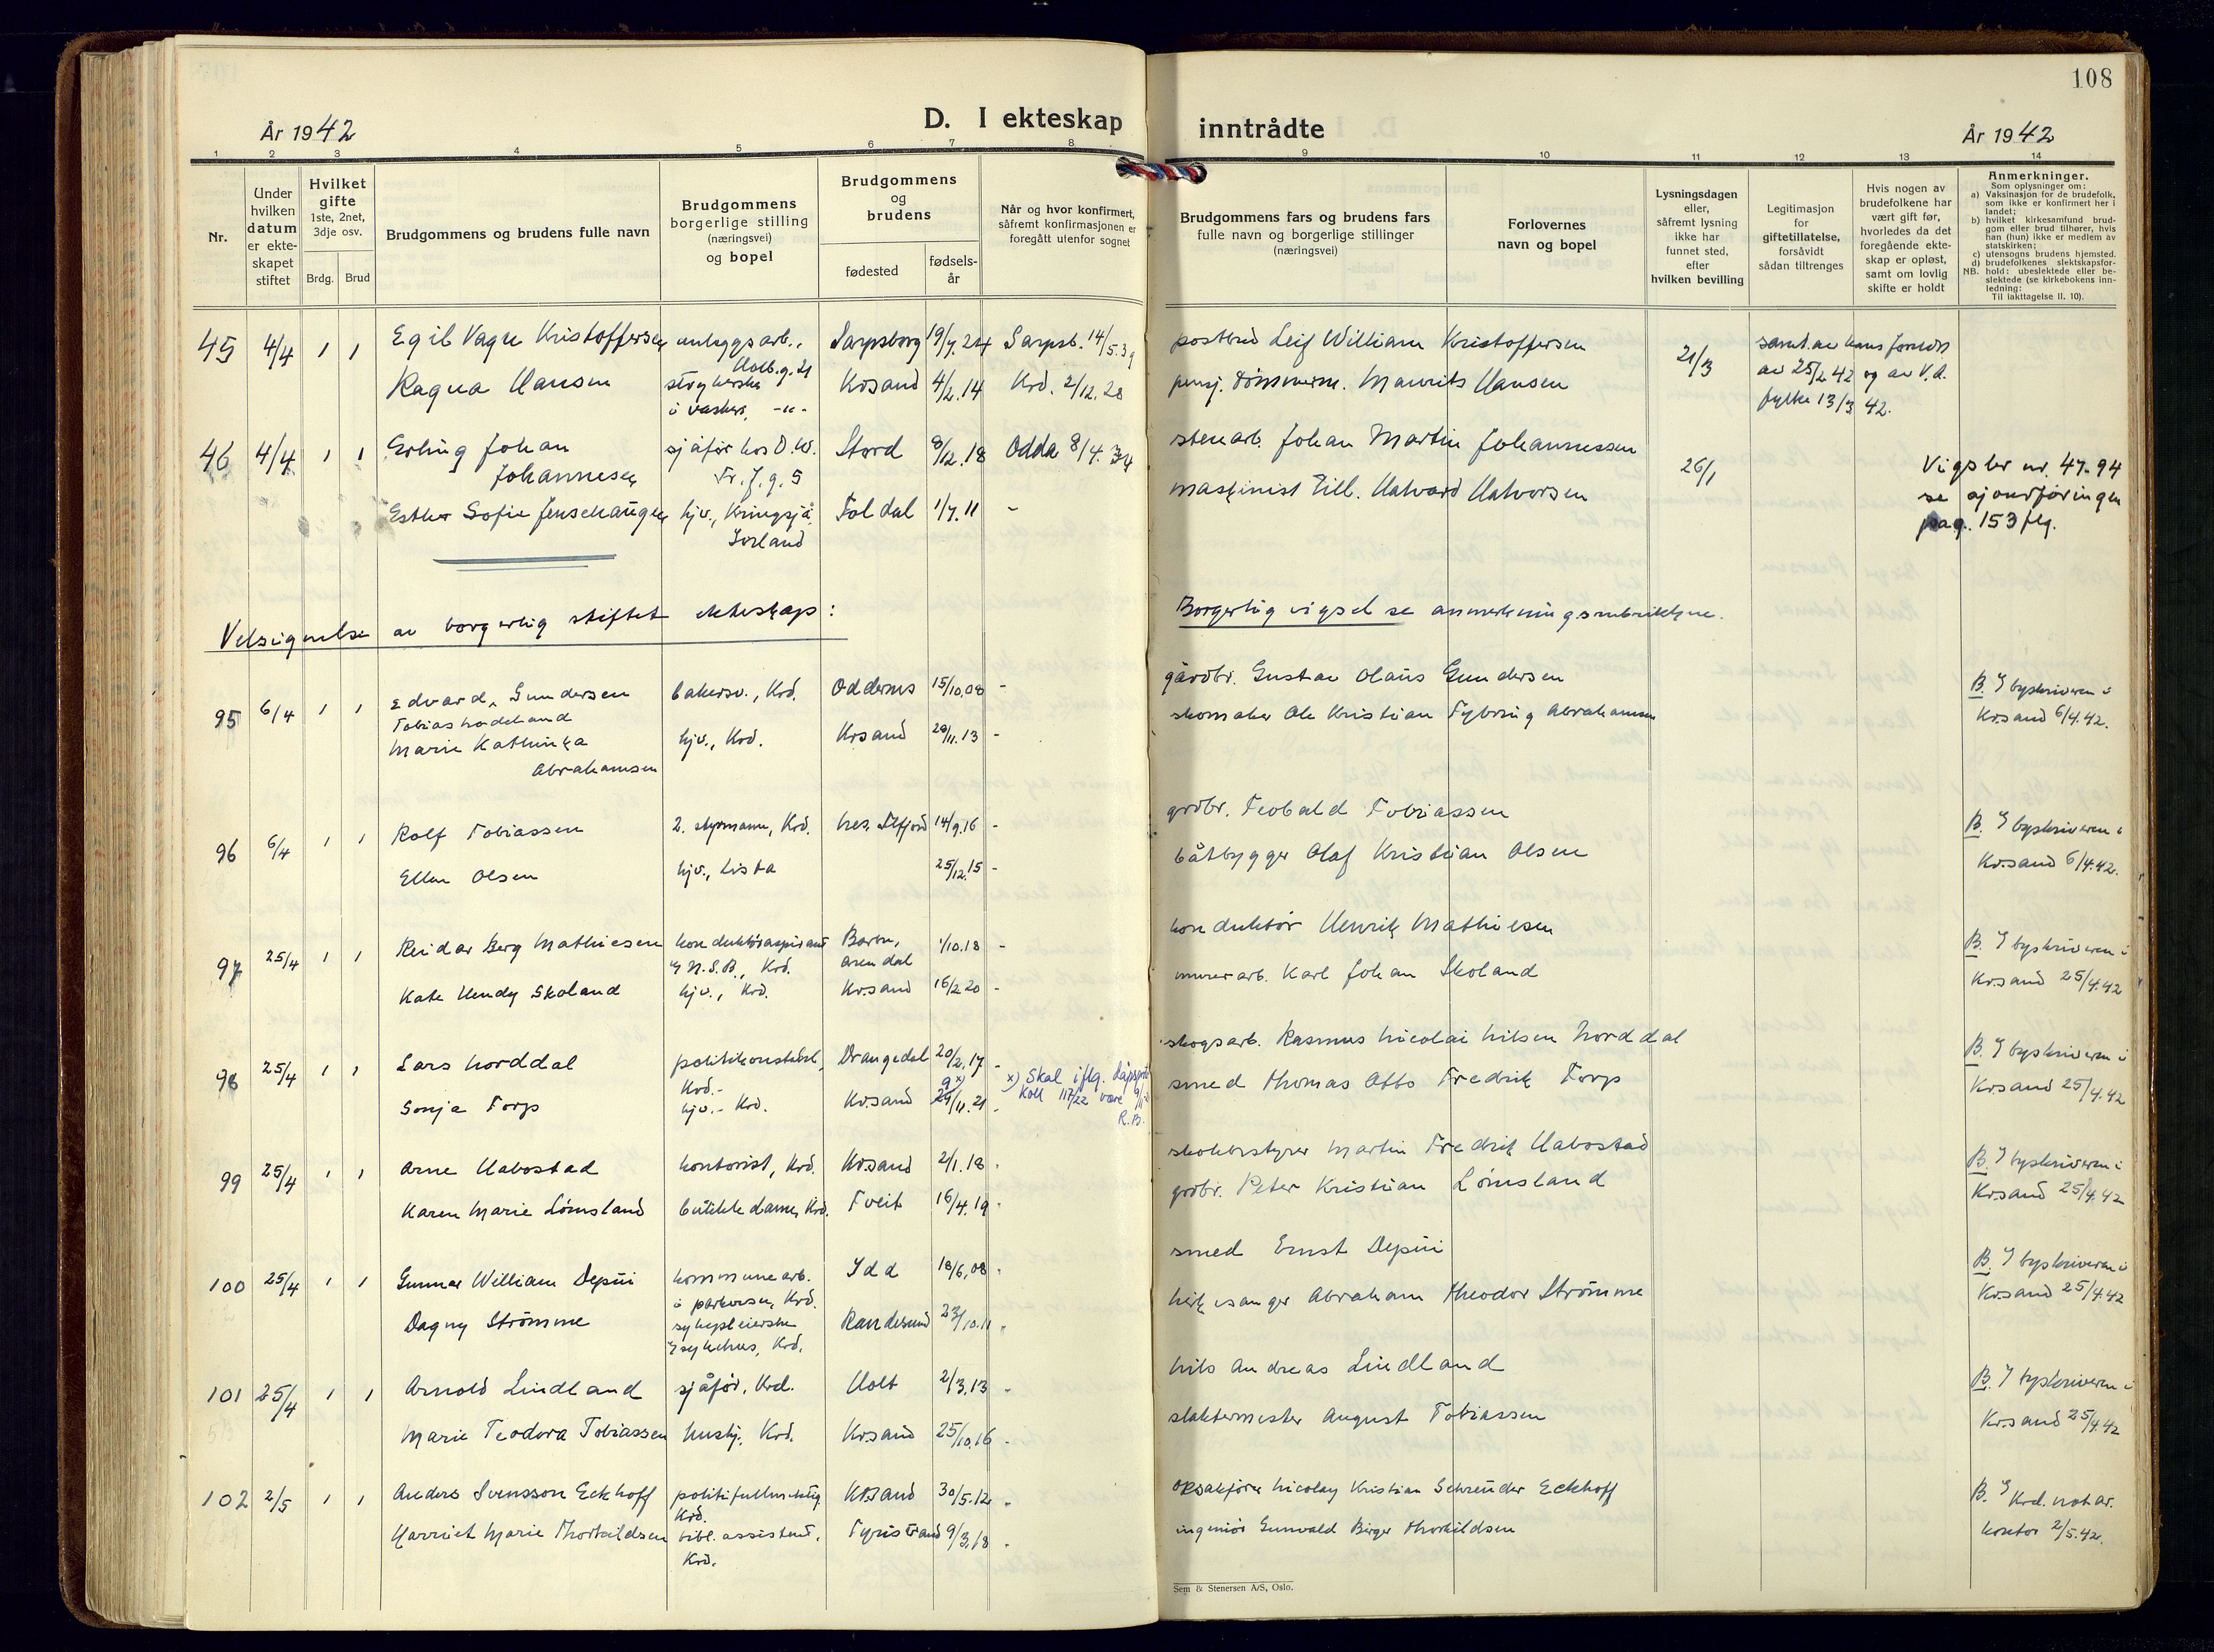 108
År 1942
D. I ekteskap
inntrådte
År 1942
1 2 3 4 5 6 7 8 9 10 11 12 13 14
Nr.
Under
hvilken
datum
er ekte-
skapet
stiftet
Hvilket
gifte
1ste, 2net,
3dje osv.
Brdg. Brud
Brudgommens og brudens fulle navn
Brudgommens
borgerlige stilling
(næringsvei)
og bopel
Brudgommens
og
brudens
fødested
fødsels-
år
Når og hvor konfirmert,
såfremt konfirmasjonen er
foregått utenfor sognet
Brudgommens fars og brudens fars
fulle navn og borgerlige stillinger
(næringsvei)
Forlovernes
navn og bopel
Lysningsdagen
eller,
såfremt lysning
ikke har
funnet sted,
efter
hvilken bevilling
Legitimasjon
for
giftetillatelse,
forsåvidt
sådan tiltrenges
Hvis nogen av
brudefolkene har
vært gift før,
hvorledes da det
foregående ekte-
skap er opløst,
samt om lovlig
skifte er holdt
Anmerkninger.
Som oplysninger om:
a) Vaksinasjon for de brudefolk,
som ikke er konfirmert her i
landet;
b) hvilket kirkesamfund brud-
gom eller brud tilhører, hvis
han (hun) ikke er medlem av
statskirken;
c) utensogns brudens hjemsted.
d) brudefolkenes slektskapsfor-
hold: ubeslektede eller be-
slektede (se kirkebokens inn-
ledning:
NB. Til iakttagelse II. 10).
45 4/4 1 1 Egil Vagn Kristoffersen anleggsarb., Sarpsborg 19/7.24 Sarpsb. 14/5.39 postbud Leif William Kristoffersen 21/3 samt. av hans foreldr
Holb.g. 21 av 25/2 42 og av V.A.
Ragna Hansen strykerske Krsand 4/2.14 Krd. 2/12.28 pensj. tømmerm. Maurits Hansen fylke 13/3 42.
i vasker. -"-
46 4/4 1 1 Erling Johan sjåfør hos O.W. Stord 8/12.18 Odda 8/4.34 stenarb. Johan Martin Johannessen 26/1
Johannesen Tr. J. g. 5
Esther Sofie Jenshaugen hjv., Kringsjå, Foldal 1/7.11 - maskinist Till. Halvard Halvorsen
Sørland
Vigsler nr. 47-94
se ajourføringen
pag. 153 flg.
Velsignelse av borgerlig stiftet ekteskap:
Borgerlig vigsel se anmerkningsrubrikkene.
95 6/4 1 1 Edvard Gundersen bakersv., Krd. Oddernes 15/10.08 - gårdbr. Gustav Olaus Gundersen B. I byskriveren i
Tobias hodeland
Marie Kathinka hjv., Krd. Krsand 29/11.13 - skomaker Ole Kristian Fybring Abrahamsen Kr.sand 6/4.42.
Abrahamsen
96 6/4 1 1 Rolf Tobiassen 2. styrmann, Krd. 14/9.16 - grdbr. Teobald Tobiassen B. I byskriveren i
Ellen Olsen hjv., Lista 25/12.15 - båtbygger Olaf Kristian Olsen Kr.sand 6/4.42.
97 25/4 1 1 Reidar Berg Mathiesen konduktøraspirant Barbu, 1/10.18 - konduktør Henrik Mathiesen B. I byskriveren i
v/ N.S.B., Krd. Arendal
Kate Hendy Skoland hjv., Krd. Kr.sand 16/2 20 - murerarb. Karl Johan Skoland Kr.sand 25/4.42
98 25/4 1 1 Lars Norddal politikonstabel, Drangedal 20/2.17 - skogsarb. Rasmus Nicolai Nilsen Norddal B. I byskriveren i
Krd.-
Sonja Torp hjv.- Krd. Kr.sand 29/11.21 - smed Thomas Otto Fredrik Torp Kr.sand 25/4.42
9 x)
x) Skal iflg. dåpsprot
Koll 117/22 være 9/11
R.B.
99 25/4 1 1 Arne Habostad kontorist, Krd. Kr.sand 2/1.18 - skolebestyrer Martin Fredrik Habostad B. I byskriveren i
Karen Marie Lømsland butikkdame, Krd. Tveit 16/4.19 - grdbr. Peter Kristian Lømsland Kr.sand 25/4.42
100 25/4 1 1 Gunnar William Depui kommunearb. Idd 18/6.08 - smed Ernst Depui B. I byskriveren i
i parkvesen, Krd.
Dagny Strømme sykepleierske Randesund 23/10.11 - kirkesanger Abraham Theodor Strømme Kr.sand 25/4.42
v/ sykehus, Krd.
101 25/4 1 1 Arnold Lindland sjåfør, Krd. Holt 2/3.13 - Nils Andreas Lindland B. I byskriveren i
Marie Teodora Tobiassen hushj., Krd. Kr.sand 25/10.16 - slaktermester August Tobiassen Kr.sand 25/4.42
102 2/5 1 1 Anders Svensson Eckhoff politifullmektig Kr.sand 30/5.12 - o.r.sakfører Nicolay Kristian Schreuder Eckhoff B. I Krd. notar.
Krd.
Harriet Marie Thorkildsen bibl. assistent, Tyristrand 9/3.18 - ingeniør Gunvald Birger Thorkildsen kontor 2/5.42.
Krd.
Sem & Stenersen A/S, Oslo.